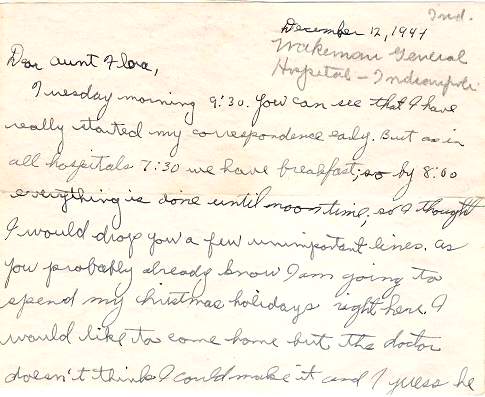 Ind.
December 12, 1944
Wakeman General
Hospital - Indianapolis
Dear Aunt Flora,
Tuesday morning 9:30. You can see that I have
really started my correspondence early. But as in
all hospitals 7:30 we have breakfast; so by 8:00
everything is done until noon time, so I thought
I would drop you a few unimportant lines. As
you probably already know I am going to
spend my christmas holidays right here. I
would like to come home but the doctor
doesn't think I could make it and I guess he